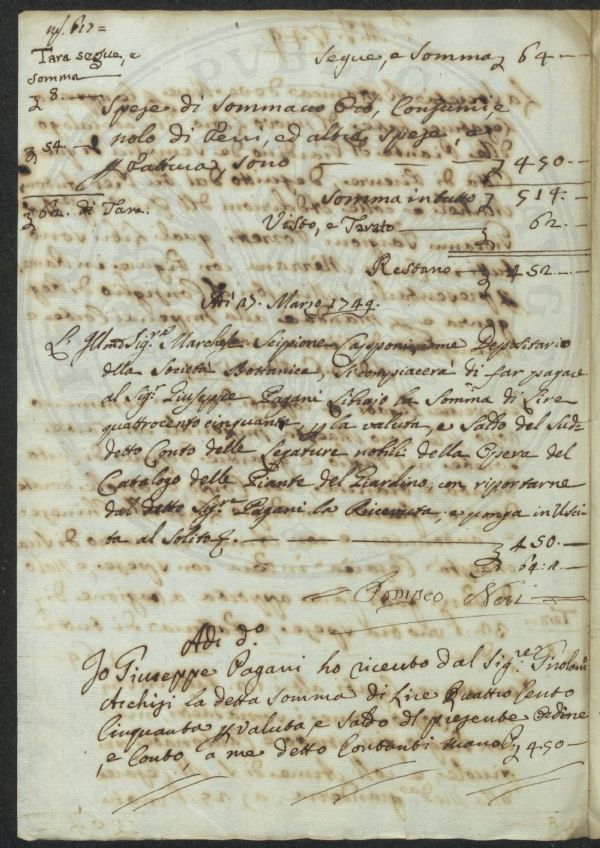 Tara segue, e
somma
8.
54
62. di Tara.
Segue, e Somma 64
Spese di Sommacco Consumi, e
nolo di Ferri, ed altre spese, e
Fattura, sono 450
Somma in tutto 514.
Visto, e Tarato 62.
Restano 452
Adi 27. Marzo 1749.
L'Illmo Sig.re Marchese Scipione Capponi, come Depositario
della Società Bottanica, si compiacerà di far pagare
al Sig.r Giuseppe Pagani Libraio la Somma di Lire
quattrocento cinquanta p la valuta, e Saldo del Sud-
detto Conto delle Legature nobili della Opera del
Catalogo delle Piante del Giardino, con riportarne
dal detto Sig.re Pagani la Ricevuta, e ponga in Usci-
ta al Solito
450.
64.
Pompeo Neri
Adi d.o
Io Giuseppe Pagani ho riceuto dal Sig.re Girolamo
la detta Somma di Lire Quattro Cento
Cinquanta p Valuta, e Saldo del presente Ordine
e Conto, a me detto Contanti 450